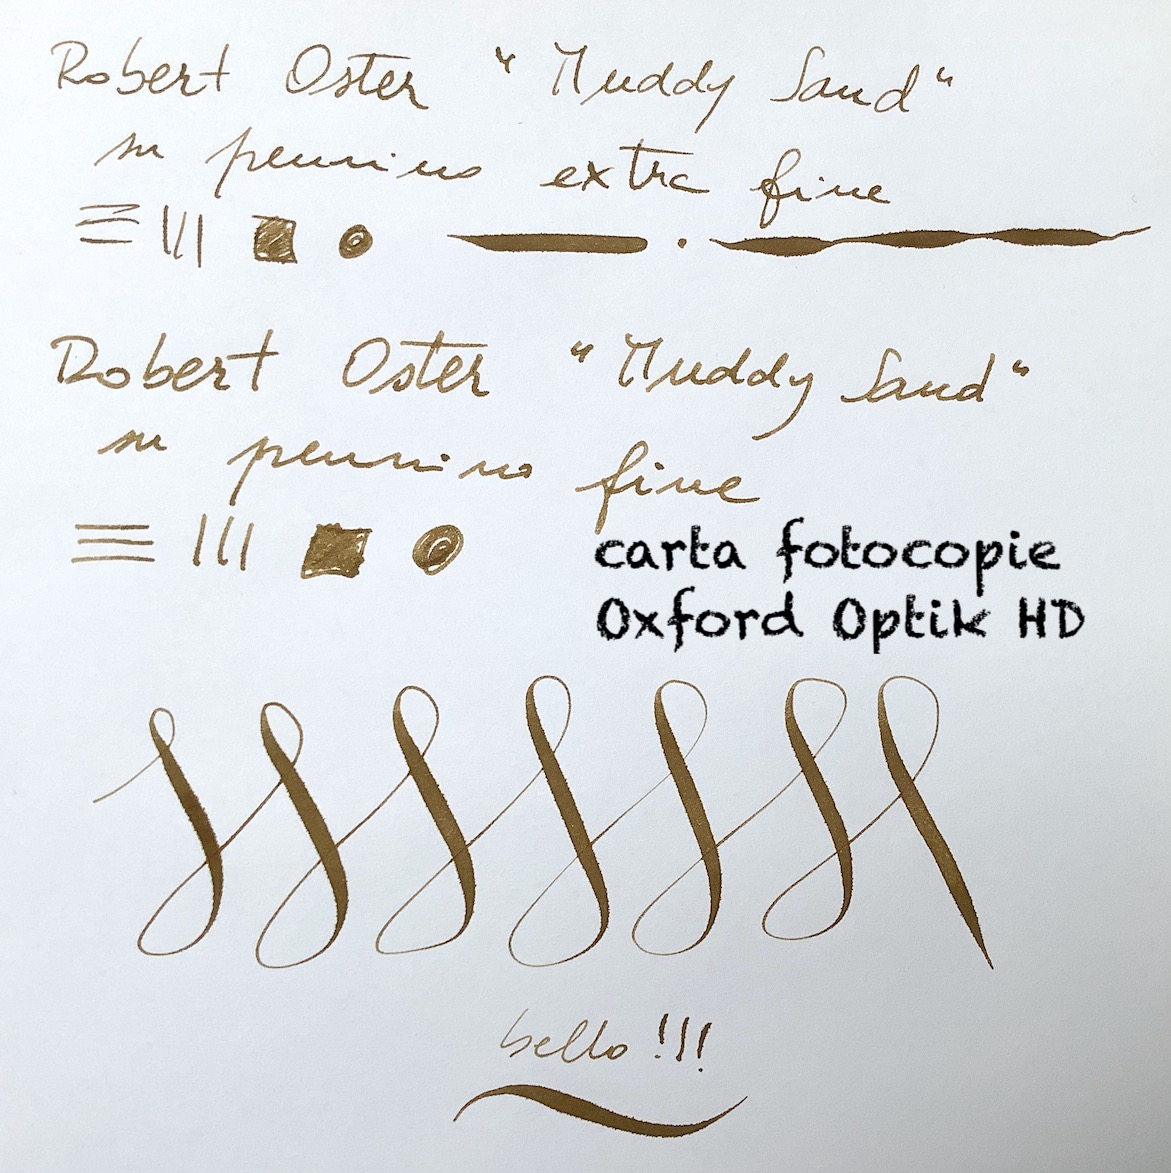 Robert Oster "Muddy Sand"
su pennino extra fine
Robert Oster "Muddy Sand"
su pennino fine
carta fotocopie
Oxford Optik HD
bello !!!